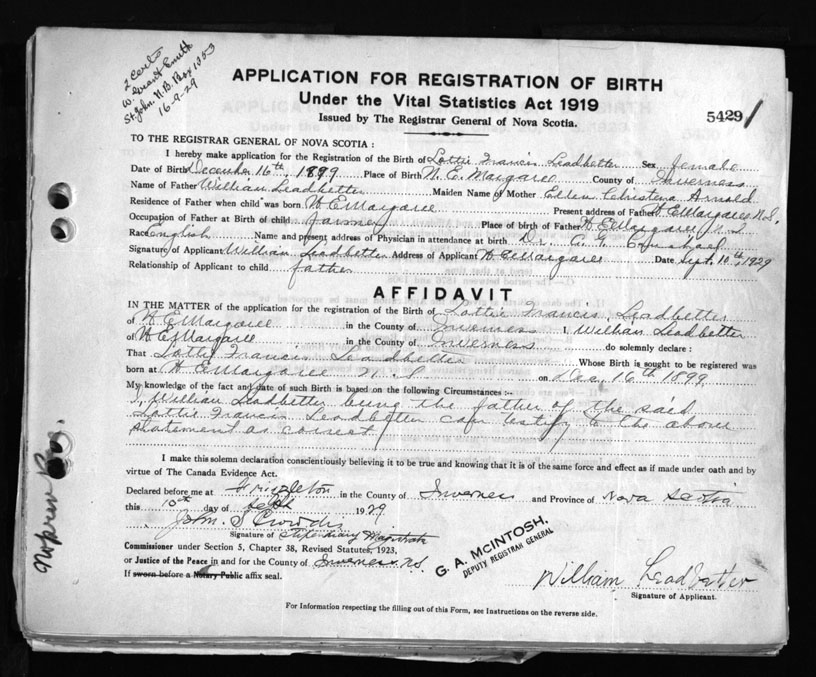 2 Certs
W. Grant Smith
St. John. N.B. Box 1353
16-9-29
APPLICATION FOR REGISTRATION OF BIRTH
Under the Vital Statistics Act 1919
Issued by The Registrar General of Nova Scotia.
54291
TO THE REGISTRAR GENERAL OF NOVA SCOTIA :
I hereby make application for the Registration of the Birth of Lottie Francis Leadbetter Sex female
Date of Birth December 16th, 1899 Place of Birth N. E. Margaree County of Inverness
Name of Father William Leadbetter Maiden Name of Mother Ellen Christena Arnold
Residence of Father when child was born N E Margaree Present address of Father N E Margaree N.S.
Occupation of Father at Birth of child farmer Place of birth of Father N E Margaree N.S.
Race English Name and present address of Physician in attendance at birth Dr.
Signature of Applicant William Leadbetter Address of Applicant N E Margaree Date Sept. 10th, 1929
Relationship of Applicant to child father
AFFIDAVIT
IN THE MATTER of the application for the registration of the Birth of Lottie Francis Leadbetter
of N E Margaree in the County of Inverness I, William Leadbetter
of N E Margaree in the County of Inverness do solemnly declare :
That Lottie Francis Leadbetter Whose Birth is sought to be registered was
born at N E Margaree N. S on Dec. 16th 1899
My knowledge of the fact and date of such Birth is based on the following Circumstances :-
I, William Leadbetter being the father of the said
Lottie Francis Leadbetter can testify to the above
statement as correct
I make this solemn declaration conscientiously believing it to be true and knowing that it is of the same force and effect as if made under oath and by
virtue of The Canada Evidence Act.
Declared before me at in the County of Inverness and Province of Nova Scotia
this 10th day of Sept 1929
John S Crowdis
Signature of Stipendiary Magistrate
Commissioner under Section 5, Chapter 38, Revised Statutes, 1923,
or Justice of the Peace in and for the County of Inverness N.S.
If sworn before a Notary Public affix seal.
G. A. McINTOSH,
DEPUTY REGISTRAR GENERAL
William Leadbetter
Signature of Applicant.
For Information respecting the filling out of this Form, see Instructions on the reverse side.